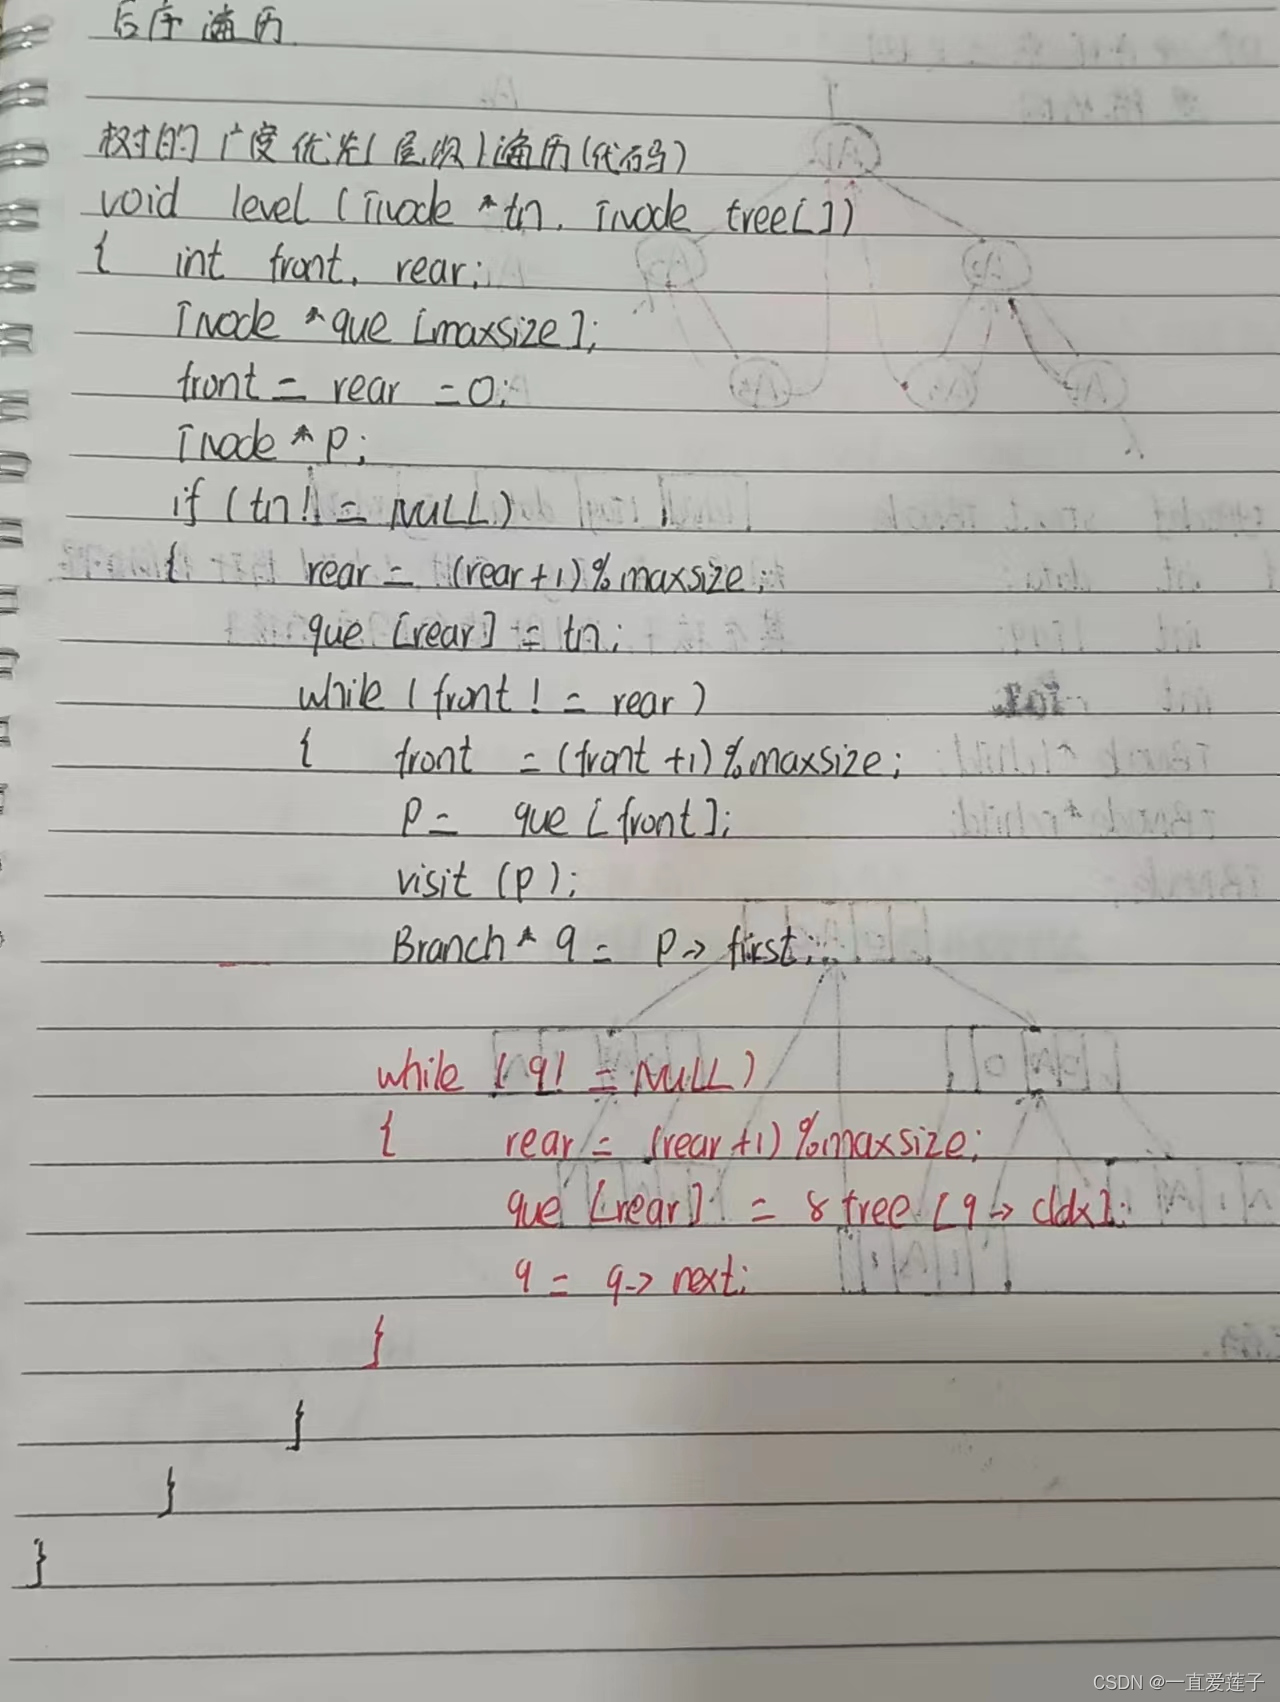 后序遍历
树的广度优先(层次)遍历(代码)
void level (Tnode *tn, Tnode tree[])
{ int front, rear;
Tnode *que [maxsize];
front = rear = 0;
Tnode *p;
if (tn != NULL)
{ rear = (rear+1)%maxsize;
que [rear] = tn;
while (front != rear)
{ front = (front+1)%maxsize;
p = que [front];
visit (p);
Branch * q = p-> first;
while (q! = NULL)
{ rear = (rear+1)%maxsize;
que [rear] = & tree [q -> cIdx];
q = q-> next;
}
}
}
}
CSDN @一直爱莲子